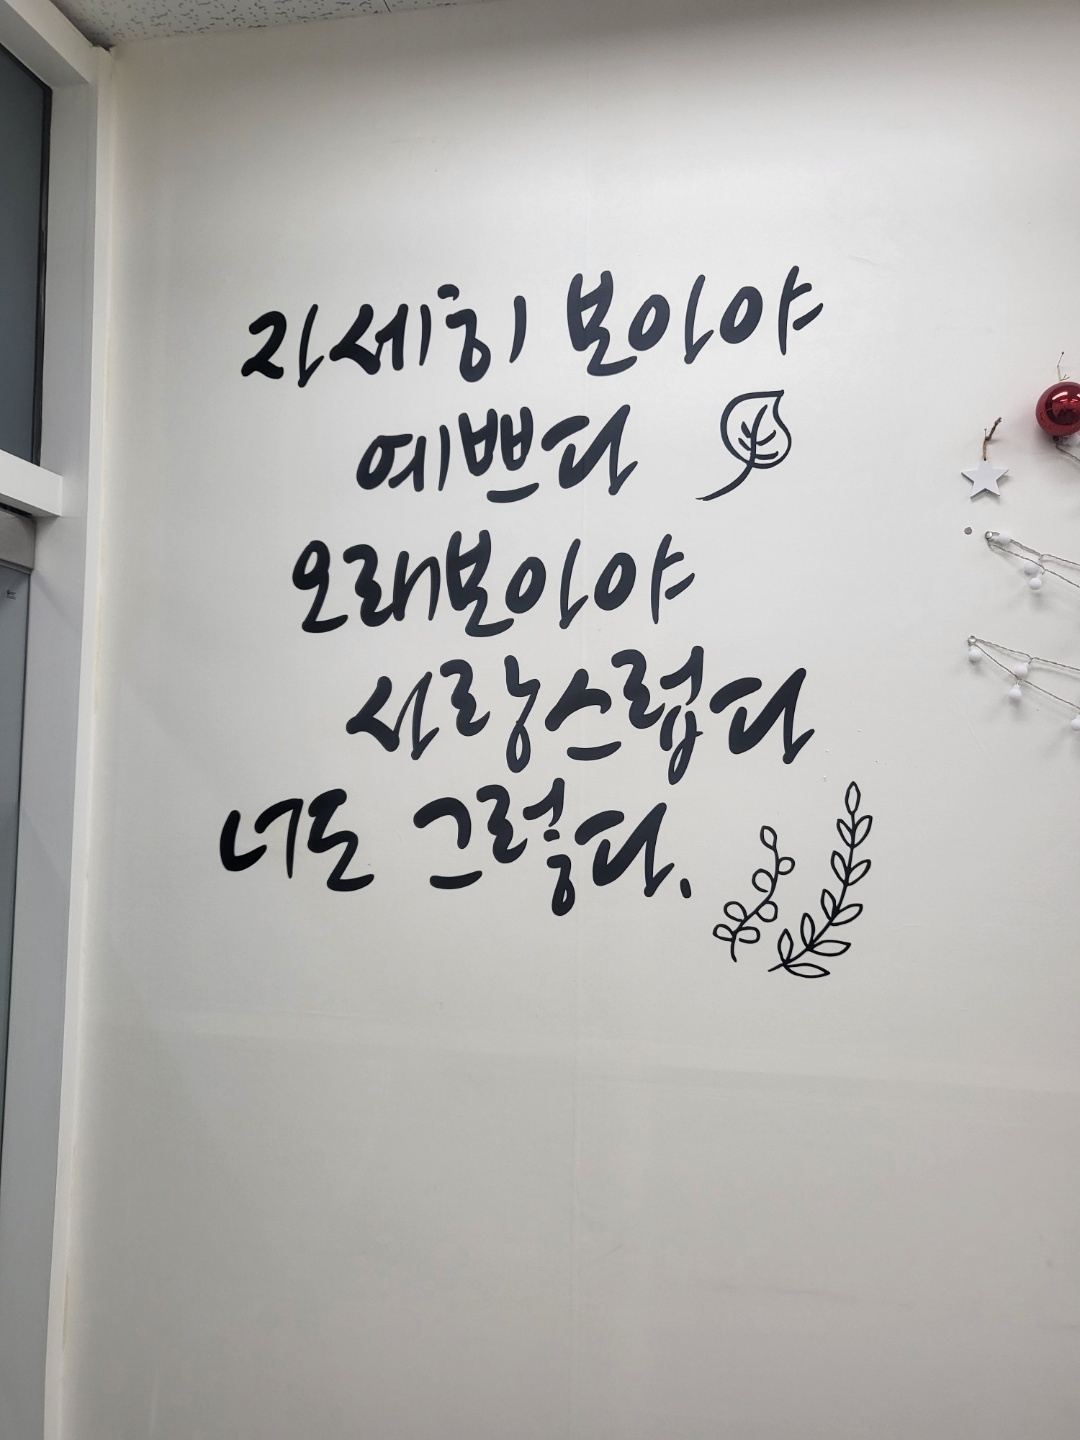 자세히 보아야
예쁘다
오래보아야
사랑스럽다
너도 그렇다.